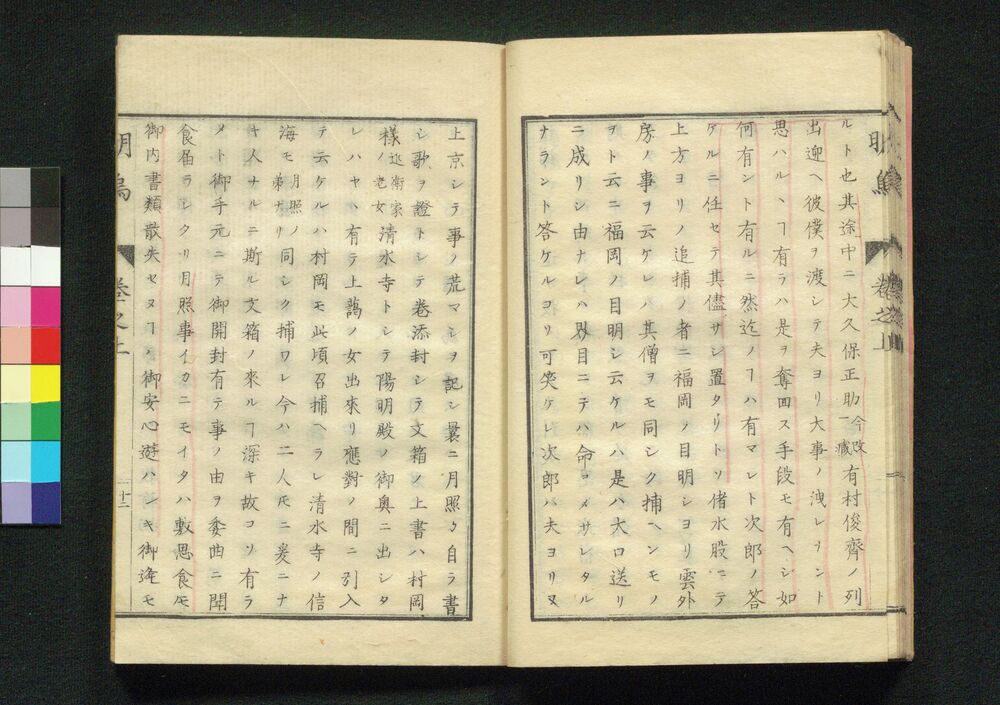 ルト也其途中ニ大久保正助今改一藏有村俊齊ノ列
出迎ヘ彼僕ヲ渡シテ夫ヨリ大事ノ洩レヿント
思ハルヽヿ有ラハ是ヲ奪回ス手段モ有ヘシ如
何有ント有ルニ然迄ノヿハ有マレト次郎ノ答
ケルニ任セテ其儘サシ置タリトソ偖水股ニテ
上方ヨリノ追捕ノ者ニ福岡ノ目明シヨリ雲外
房ノ事ヲ云ケレハ其僧ヲモ同シク捕ヘンモノ
ヲト云ニ福岡ノ目明シ云ケルハ是ハ大口送リ
ニ成リシ由ナレハ界目ニテハ命コメサレタル
ナラント答ケルコリ可笑ケレ次郎ハ夫ヨリ又
明烏
卷之上
上京シテ事ノ荒マシヲ記シ曩ニ月照ゟ自ラ書
シ歌ヲ證トシテ卷添封シテ文箱ノ上書ハ村岡
樣近衛家ノ老女清水寺トシテ陽明殿ノ御奧ニ出シタ
レハヤヽ有テ上﨟ノ女出來リ應對ノ間ニ引入
テ云ケルハ村岡モ此頃召捕ヘラレ清水寺ノ信
海モ月照ノ弟ナリ同シク捕ワレ今ハ二人圧ニ爰ニナ
キ人ナルニ斯ル文箱ノ來ルヿ深キ故コソ有ラ
メト御手元ニテ御開封有テ事ノ由ヲ委曲ニ聞
食届ラレタリ月照事イカニモイタハ敷思食圧
御内書類散失セヌヿハ御安心遊ハシキ御逹モ
明烏
卷之上
十二